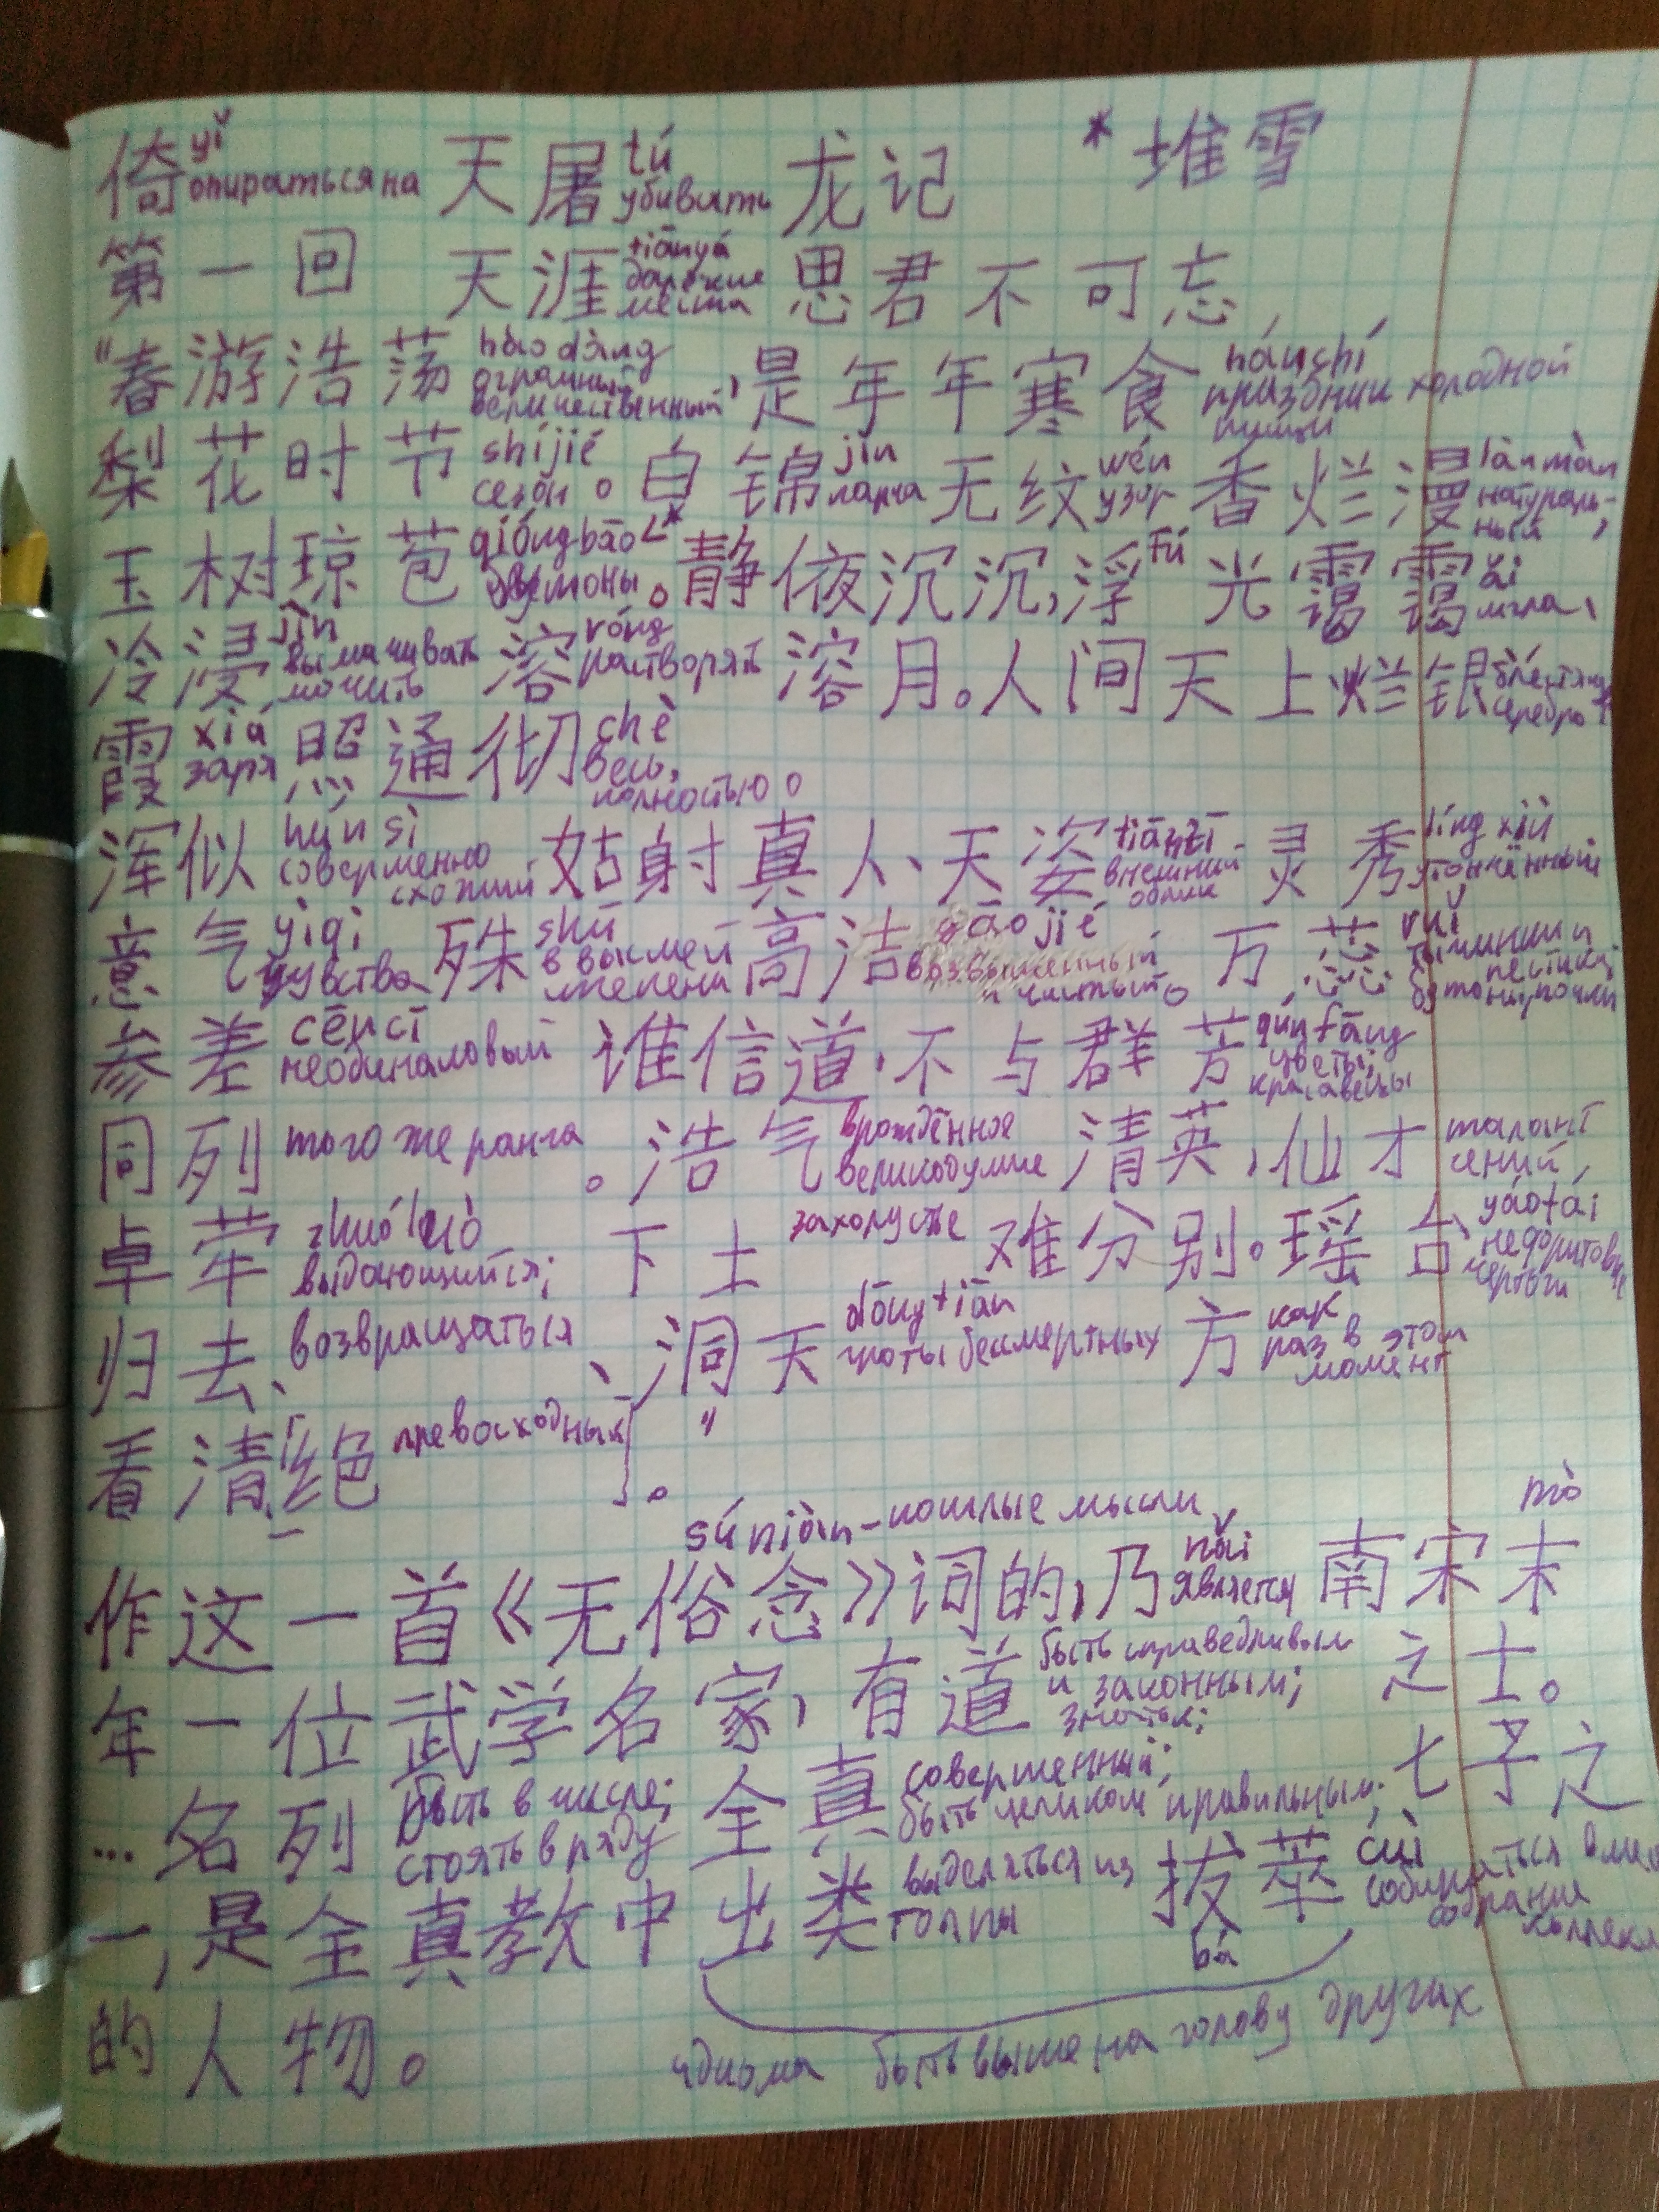 倚 yǐ опираться на 天屠 tú убивать 龙记 * 堆雪
第一回 天涯 tiānyá далёкие места 思君不可忘
"春游浩荡 hàodàng огромный величественный, 是年年寒食 hánshí праздник холодной пищи
梨花时节 shíjié сезон。白锦 jǐn парча 无纹 wén узор 香烂漫 lànmàn натуральный,
玉树琼苞 qióngbāo бутоны *。静夜沉沉,浮 fú 光霭霭 ǎi мгла,
冷浸 jìn вымачивать мочить 溶 róng растворять 溶月。人间天上烂银 блестящее серебро
霞 xiá заря 照通彻 chè весь, полностью。
浑似 hún sì совершенно схожий 姑射真人、天姿 tiānzī внешний облик 灵秀 língxiù утончённый
意气 yìqì чувства 殊 shū в высшей степени 高洁 gāojié возвышенный и чистый。万蕊 ruǐ тычинки и пестики; бутоны, почки
参差 cēncī необинаковый 谁信道,不与群芳 qúnfāng цветы; красавицы
同列 того же ранга。浩气 врождённое великодушие 清英,仙才 талант гений,
卓荦 zhuóluò выдающийся; 下土 захолустье 难分别。瑶台 yáotái нефритовые чертоги
归去 возвращаться、洞天 dòngtiān гроты бессмертных 方 как раз в этот момент
看清绝 превосходный。"
súniàn – пошлые мысли
作这一首《无俗念》词的,乃 nǎi является 南宋末 mò
年一位武学名家,有道 быть справедливым и законным; знатьк; 之士。
... 名列 быть в числе; стоять в ряду 全真 совершенный; быть целиком правильным; 七子之
一,是全真教中出类 выделяться из толпы 拔 bá 萃 cuì собираться собрание
的人物。 идиома быть выше на голову других